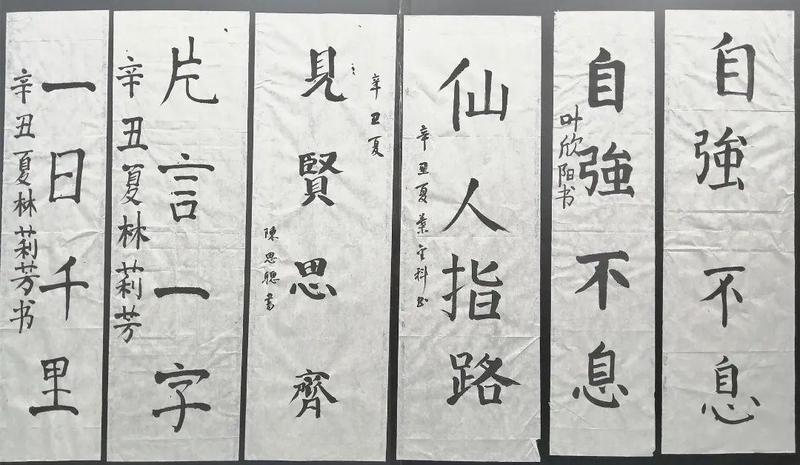 自強不息
自強不息
叶欣阳书
仙人指路
辛丑夏葉室科书
見賢思齊
辛丑夏
陳思聰書
片言一字
辛丑夏林莉芳
一日千里
辛丑夏林莉芳书